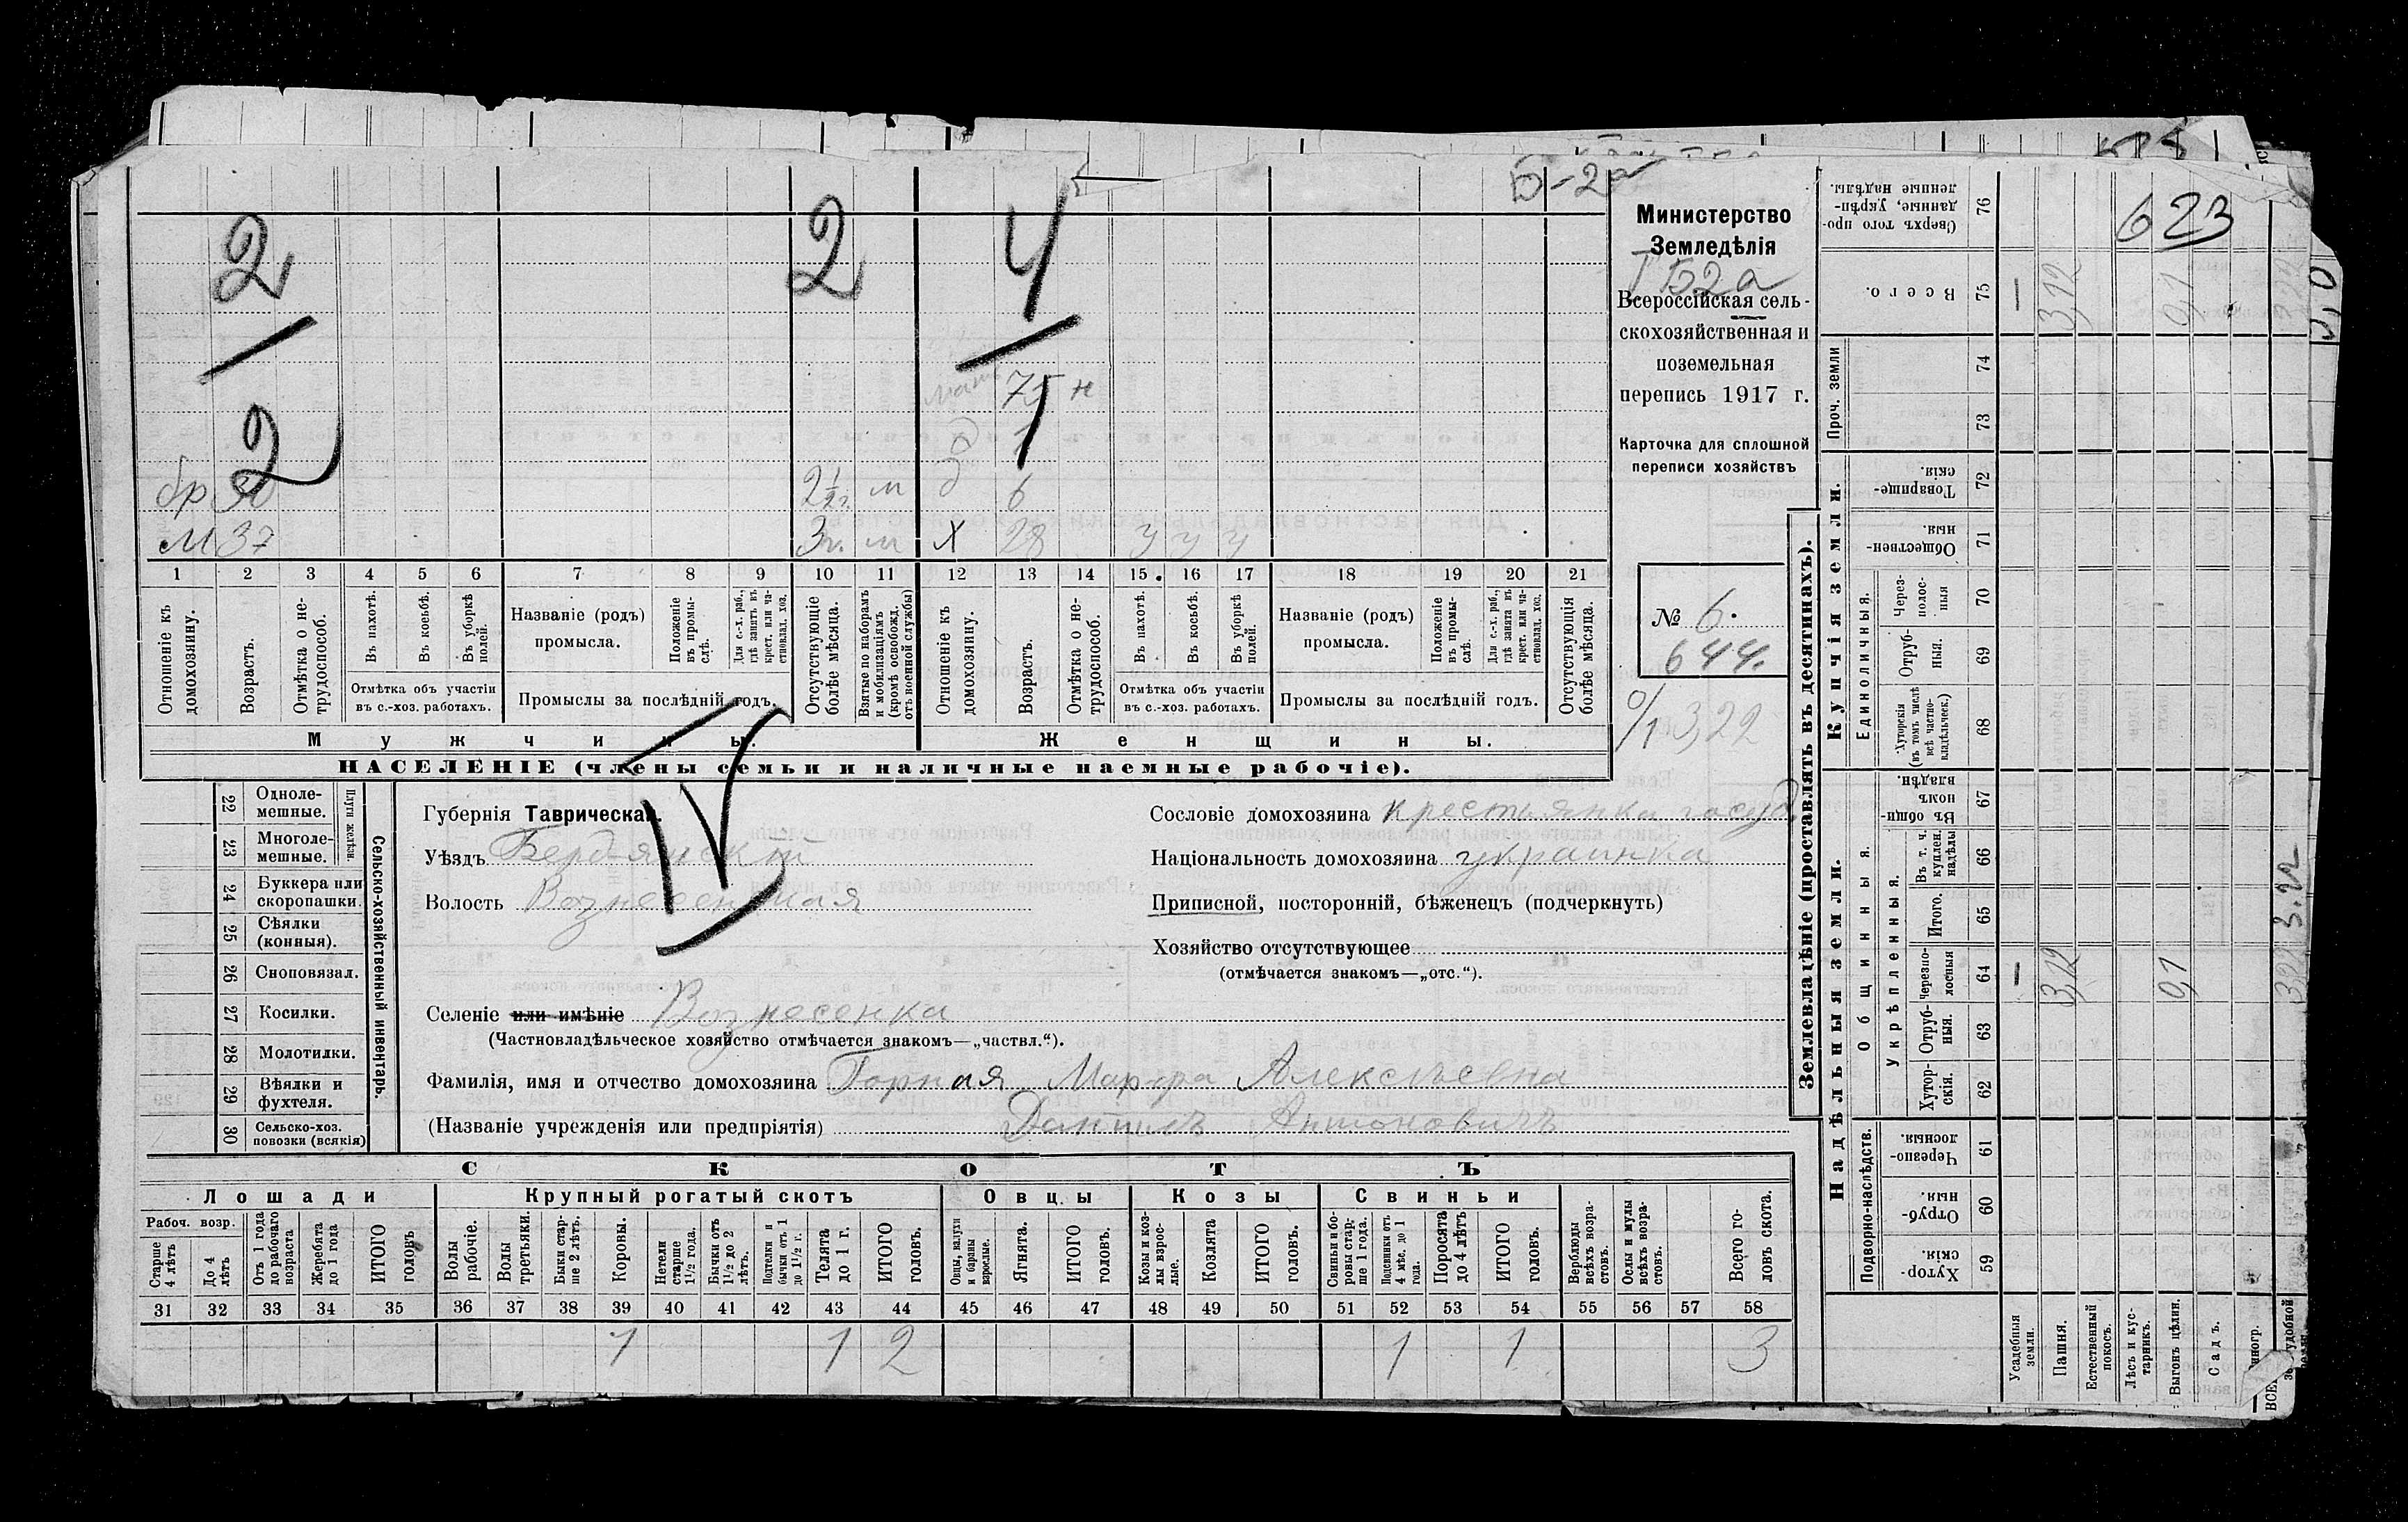 Б-2а
2
2
4
2
1
мать 75 н
д 1
бр 30 2½ г. м д 6
м 37 3 г. м х 28 у у у
1 2 3 4 5 6 7 8 9 10 11 12 13 14 15 16 17 18 19 20 21
Отношеніе къ домохозяину.
Возрастъ.
Отмѣтка о не-трудоспособ.
Въ пахотѣ.
Въ косьбѣ.
Въ уборкѣ полей.
Отмѣтка объ участіи въ с.-хоз. работахъ.
Названіе (родъ) промысла.
Положеніе въ промы-слѣ.
Для с.-х. раб., гдѣ занятъ въ крест. или ча-ствовлад. хоз.
Промыслы за послѣдній годъ.
Отсутствующіе болѣе мѣсяца.
Взятые по наборамъ и мобилизаціямъ (кромѣ освобожд. отъ военной службы)
Отношеніе къ домохозяину.
Возрастъ.
Отмѣтка о не-трудоспособ.
Въ пахотѣ.
Въ косьбѣ.
Въ уборкѣ полей.
Отмѣтка объ участіи въ с.-хоз. работахъ.
Названіе (родъ) промысла.
Положеніе въ промы-слѣ.
Для с.-х. раб., гдѣ занятъ въ крест. или ча-ствовлад. хоз.
Промыслы за послѣдній годъ.
Отсутствующія болѣе мѣсяца.
Мужчины.
Женщины.
НАСЕЛЕНІЕ (члены семьи и наличные наемные рабочіе).
Министерство
Земледѣлія
Б2а
Всероссійская сель-
скохозяйственная и
поземельная
перепись 1917 г.
Карточка для сплошной
переписи хозяйствъ
№ 6.
644.
3,22
22 Одноле-мешные.
23 Многоле-мешные.
Плуги желѣзн.
24 Буккера или скоропашки.
25 Сѣялки (конныя).
26 Сноповязал.
27 Косилки.
28 Молотилки.
29 Вѣялки и фухтеля.
30 Сельско-хоз. повозки (всякія)
Сельско-хозяйственный инвентарь.
IV
Губернія Таврическая.
Уѣздъ Бердянскій
Волость Вознесенская
Селеніе или имѣніе Вознесенка
(Частновладѣльческое хозяйство отмѣчается знакомъ—„частвл.“).
Фамилія, имя и отчество домохозяина Горная Марфа Алексѣевна
(Названіе учрежденія или предпріятія) Даниилъ Антоновичъ
Сословіе домохозяина крестьянка госуд.
Національность домохозяина украинка
Приписной, посторонній, бѣженецъ (подчеркнуть)
Хозяйство отсутствующее
(отмѣчается знакомъ—„отс.“).
СКОТЪ
Лошади
Крупный рогатый скотъ
Овцы
Козы
Свиньи
Рабоч. возр.
Старше 4 лѣтъ
До 4 лѣтъ
Отъ 1 года до рабочаго возраста
Жеребята до 1 года
ИТОГО головъ
Волы рабочіе.
Волы третьяки.
Быки стар-ше 2 лѣтъ.
Коровы.
Нетели старше 1½ года.
Бычки отъ 1½ до 2 лѣтъ.
Подтелки и бычки отъ 1 до 1½ г.
Телята до 1 г.
ИТОГО головъ.
Овцы, валухи и бараны взрослые.
Ягнята.
ИТОГО головъ.
Козы и коз-лы взрос-лые.
Козлята
ИТОГО головъ.
Свиньи и бо-ровы стар-ше 1 года.
Подсвинки отъ 4 мѣс. до 1 года.
Поросята до 4 лѣтъ
ИТОГО головъ.
Верблюды всѣхъ возра-стовъ.
Ослы и мулы всѣхъ возра-стовъ.
Всего го-ловъ скота.
31 32 33 34 35 36 37 38 39 40 41 42 43 44 45 46 47 48 49 50 51 52 53 54 55 56 57 58
1 1 2 1 1 3
Землевладѣніе (проставлять въ десятинахъ).
Купчія земли.
Надѣльныя земли.
Сверхъ того про-данные, укрѣп-ленные надѣлы. 76
623
Всего. 75 — 3,12 0,1
Проч. земли 74 73
Товарище-скія. 72
Обществен-ныя. 71
Единоличныя.
Через-полос-ныя 70
Отруб-ныя. 69
Хуторскія (въ томъ числѣ всѣ частно-владѣльческ.) 68
Общинныя.
Въ общи-номъ владѣн. 67
Укрѣпленныя.
Въ т. ч. куплен. надѣлы 66
Итого. 65
Черезпо-лосныя 64 — 3,12 0,1
3.22
Отруб-ныя. 63
Хутор-скія. 62
Подворно-наслѣдств.
Черезпо-лосныя. 61
Отруб-ныя. 60
Хутор-скія. 59
Усадебныя земли.
Пашня.
Естественный покосъ.
Лѣсъ и кус-тарникъ.
Выгонъ цѣлин.
Садъ.